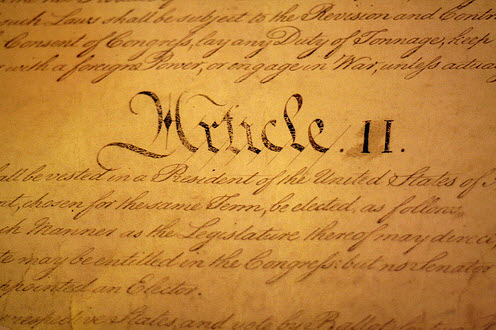 such Laws shall be subject to the Revision and Contr
Consent of Congress, lay any Duty of Tonnage, keep
with a foreign Power, or engage in War, unless actua
Article. II.
all be vested in a President of the United States of
nt, chosen for the same Term, be elected, as follow
ch Manner as the Legislature thereof may direc
te may be entitled in the Congress: but no Senator
appointed an Elector.
respective States, and vote by Ballot